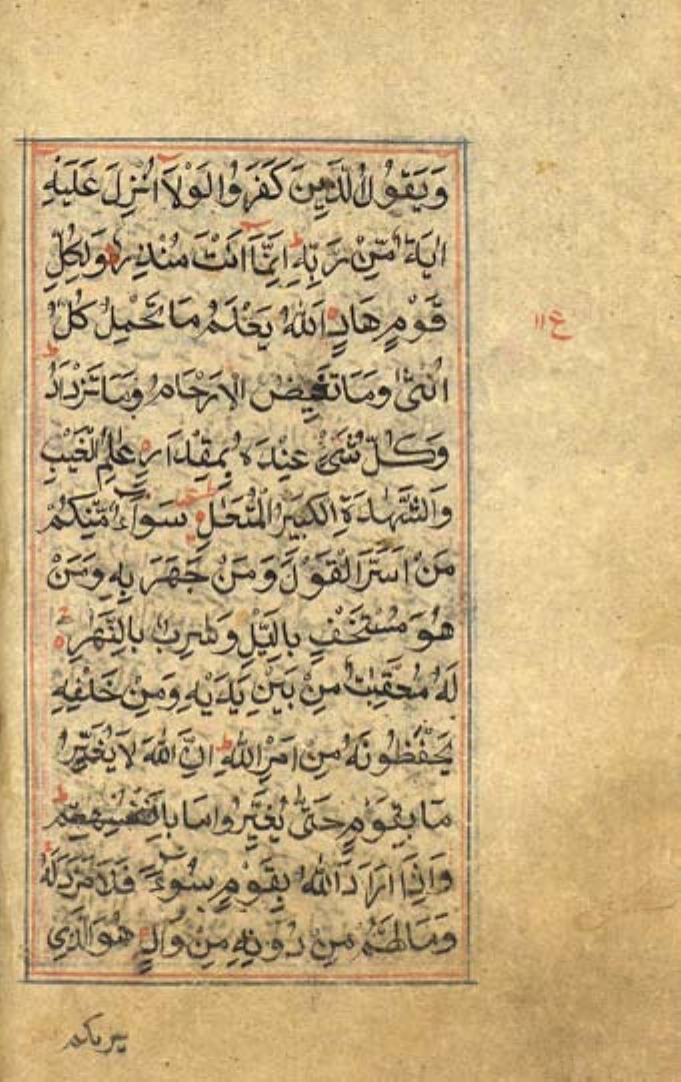 وَيَقُولُ الَّذِينَ كَفَرُوا لَوْلَا أُنْزِلَ عَلَيْهِ
اٰيَةٌ مِّنْ رَبِّهِ إِنَّمَا أَنْتَ مُنْذِرٌ وَلِكُلِّ
قَوْمٍ هَادٍ اَللّٰهُ يَعْلَمُ مَا تَحْمِلُ كُلُّ
اُنْثٰى وَمَا تَغِيضُ الْاَرْحَامُ وَمَا تَزْدَادُ
وَكُلُّ شَىْءٍ عِنْدَهُ بِمِقْدَارٍ عٰلِمُ الْغَيْبِ
وَالشَّهَادَةِ الْكَبِيْرُ الْمُتَعَالِ سَوَآءٌ مِّنْكُمْ
مَنْ اَسَرَّ الْقَوْلَ وَمَنْ جَهَرَ بِهِ وَمَنْ
هُوَ مُسْتَخْفٍ بِالَّيْلِ وَسَرِبٌ بِالنَّهَرِ
لَهُ مُعَقِّبٰتٌ مِنْ بَيْنِ يَدَيْهِ وَمِنْ خَلْفِهِ
يَحْفَظُونَهُ مِنْ اَمْرِ اللّٰهِ اِنَّ اللّٰهَ لَا يُغَيِّرُ
مَا بِقَوْمٍ حَتّٰى يُغَيِّرُوا مَا بِاَنْفُسِهِمْ
وَاِذَا اَرَادَ اللّٰهُ بِقَوْمٍ سُوْءً فَلَا مَرَدَّ لَهُ
وَمَا لَهُمْ مِنْ دُوْنِهِ مِنْ وَالٍ هُوَ الَّذِى
يريكم